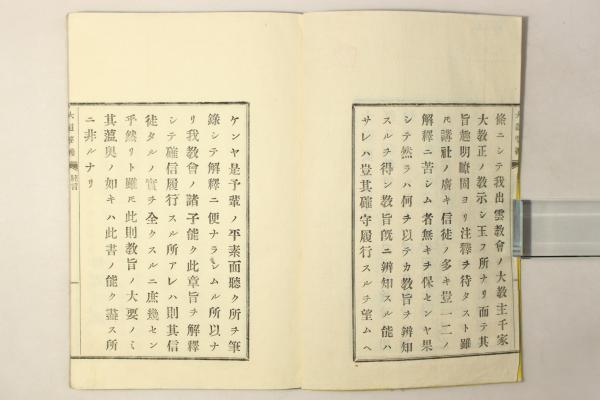 條ニシテ我出雲教會ノ大教主千家
大教正ノ教示シ玉フ所ナリ而テ其
旨趣明瞭固ヨリ注釋ヲ待タスト雖
𪜈講社ノ廣キ信徒ノ多キ豈一二ノ
解釋ニ苦シム者無キヲ保センヤ果
シテ然ラハ何ヲ以テカ教旨ヲ辨知
スルヲ得ン教旨旣ニ辨知スル能ハ
サレハ豈其確守履行スルヲ望ムヘ
ケンヤ是予輩ノ平素面聽ク所ヲ筆
錄シテ解釋ニ便ナランムル所以ナ
リ我教會ノ諸子能ク此章旨ヲ解釋
シテ確信履行スル所アレハ則其信
徒タルノ實ヲ全クスルニ庶幾セン
乎然リト雖𪜈此則教旨ノ大要ノミ
其薀奧ノ如キハ此書ノ能ク盡ス所
ニ非ルナリ